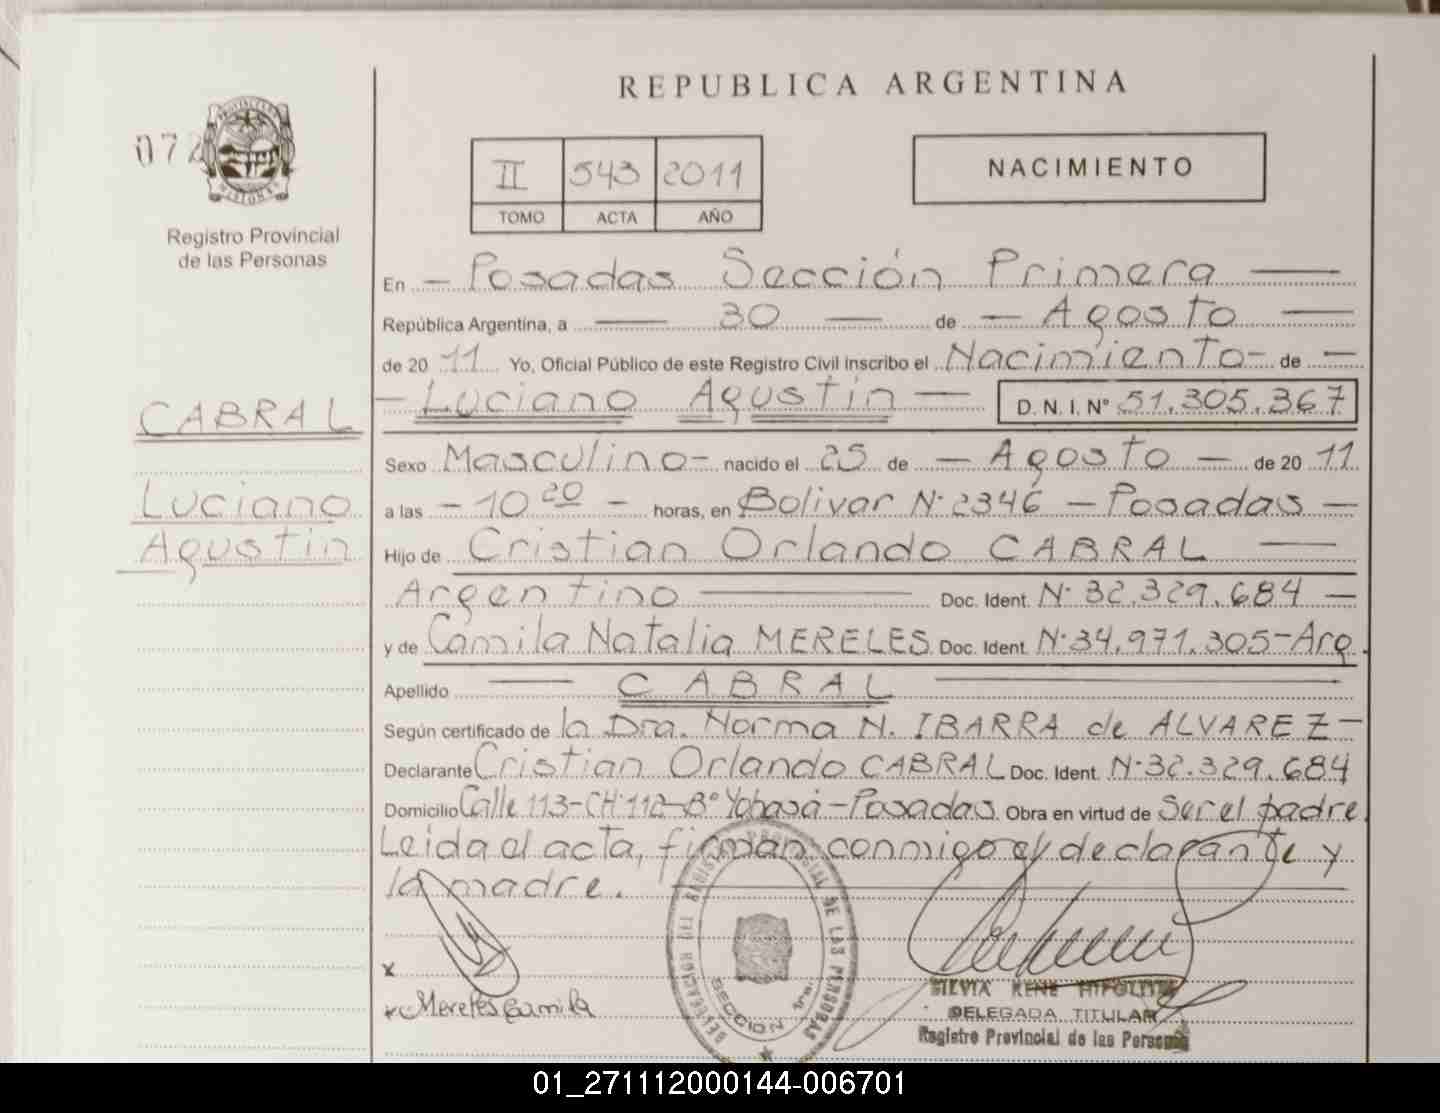 REPUBLICA ARGENTINA
072
PROVINCIA
MISIONES
Registro Provincial
de las Personas
II 543 2011
TOMO ACTA AÑO
NACIMIENTO
En Posadas Sección Primera
República Argentina, a 30 de Agosto
de 2011 Yo, Oficial Público de este Registro Civil inscribo el Nacimiento de
Luciano Agustin D. N. I. Nº 51.305.367
CABRAL
Luciano
Agustin
Sexo Masculino nacido el 25 de Agosto de 2011
a las 10 20 horas, en Bolivar Nº 2346 - Posadas
Hijo de Cristian Orlando CABRAL
Argentino Doc. Ident. Nº 32.329.684
y de Camila Natalia MERELES Doc. Ident. Nº 34.971.305-Arg.
Apellido CABRAL
Según certificado de la Dra. Norma N. IBARRA de ALVAREZ
Declarante Cristian Orlando CABRAL Doc. Ident. Nº 32.329.684
Domicilio Calle 113-CH.112-Bº Yohasá-Posadas Obra en virtud de Ser el padre.
Leida el acta, firman conmigo el declarante y
la madre.
x
x Mereles Camila
DELEGACION DEL REGISTRO PROVINCIAL DE LAS PERSONAS
SECCION 1ra.
SILVIA RENE HIPOLITTE
DELEGADA TITULAR
Registro Provincial de las Personas
01_271112000144-006701